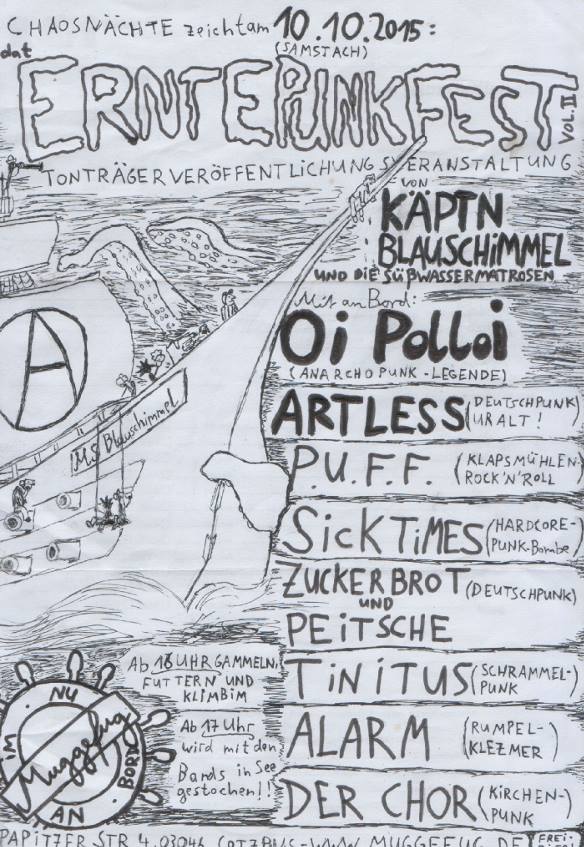 CHAOSNÄCHTE zeicht am 10.10.2015:
(SAMSTACH)
dat
ERNTEPUNKFEST VOL. II
TONTRÄGERVERÖFFENTLICHUNGSVERANSTALTUNG
VON
KÄPTN
BLAUSCHIMMEL
UND DIE SÜßWASSERMATROSEN
Mit an Bord:
Oi Polloi
(ANARCHOPUNK-LEGENDE)
ARTLESS (DEUTSCHPUNK)
URALT!
P.U.F.F. (KLAPSMÜHLEN-
ROCK'N'ROLL
SICK TIMES (HARDCORE-
PUNK-Bombe)
ZUCKERBROT (DEUTSCHPUNK)
UND
PEITSCHE
TINITUS (SCHRAMMEL-
PUNK
ALARM (RUMPEL-
KLEZMER)
DER CHOR (KIRCHEN-
PUNK)
A
MS Blauschimmel
Ab 16 UHR GAMMELN,
FUTTERN UND
KLIMBIM
Ab 17 Uhr
wird mit den
Bands in See
gestochen!!
IM NU AN BORD
Muggefug
PAPITZER STR 4, 03046 COTTBUS - WWW.MUGGEFUG.DE